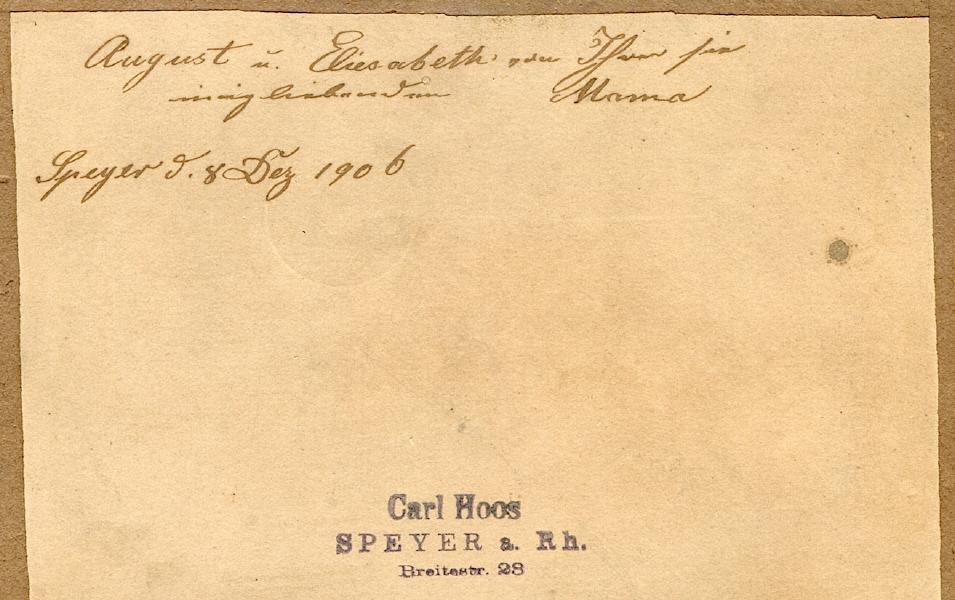 August u. Eliesabeth von Ihrer sie
innigliebenden Mama
Speyer d. 8 Dez 1906
Carl Hoos
SPEYER a. Rh.
Breitestr. 28